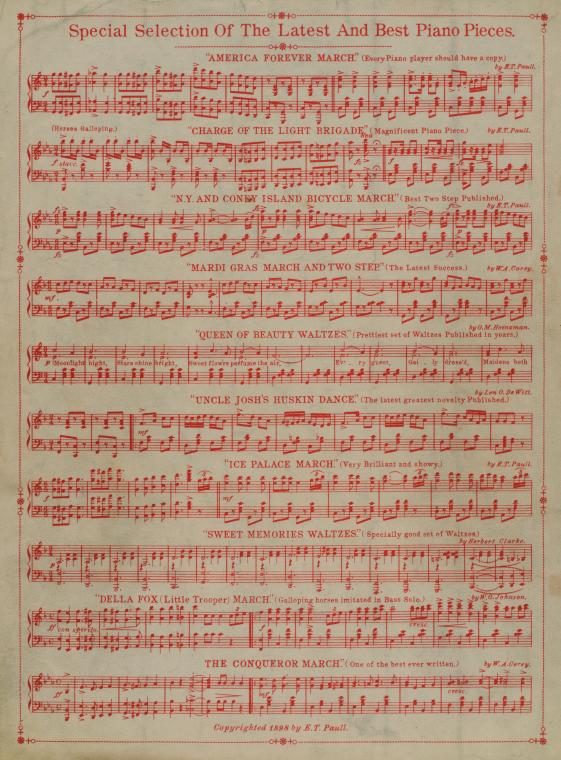 Special Selection Of The Latest And Best Piano Pieces.
"AMERICA FOREVER MARCH." (Every Piano player should have a copy.)
by E.T. Paull.
(Horses Galloping.) "CHARGE OF THE LIGHT BRIGADE" (Magnificent Piano Piece.) by E.T. Paull.
f stacc.
"N.Y. AND CONEY ISLAND BICYCLE MARCH." (Best Two Step Published.)
by E.T. Paull.
"MARDI GRAS MARCH AND TWO STEP." (The Latest Success.) by W.A. Corey.
mf
by G.M. Heinzman.
"QUEEN OF BEAUTY WALTZES." (Prettiest set of Waltzes Published in years.)
p Moonlight night, Stars shine bright, Sweet flow'rs perfume the air, Ev - 'ry guest, Gai - ly dress'd, Maidens both
by Len O. De Witt.
"UNCLE JOSH'S HUSKIN DANCE." (The latest greatest novelty Published.)
mf
"ICE PALACE MARCH." (Very Brilliant and showy.) by E.T. Paull.
f mf
"SWEET MEMORIES WALTZES." (Specially good set of Waltzes.)
by Herbert Clarke.
"DELLA FOX (Little Trooper) MARCH." (Galloping horses imitated in Bass Solo.) by W.G. Johnson.
ff con spirito. f cresc.
THE CONQUEROR MARCH." (One of the best ever written.) by W.A. Corey.
ff mp cresc.
Copyrighted 1898 by E.T. Paull.